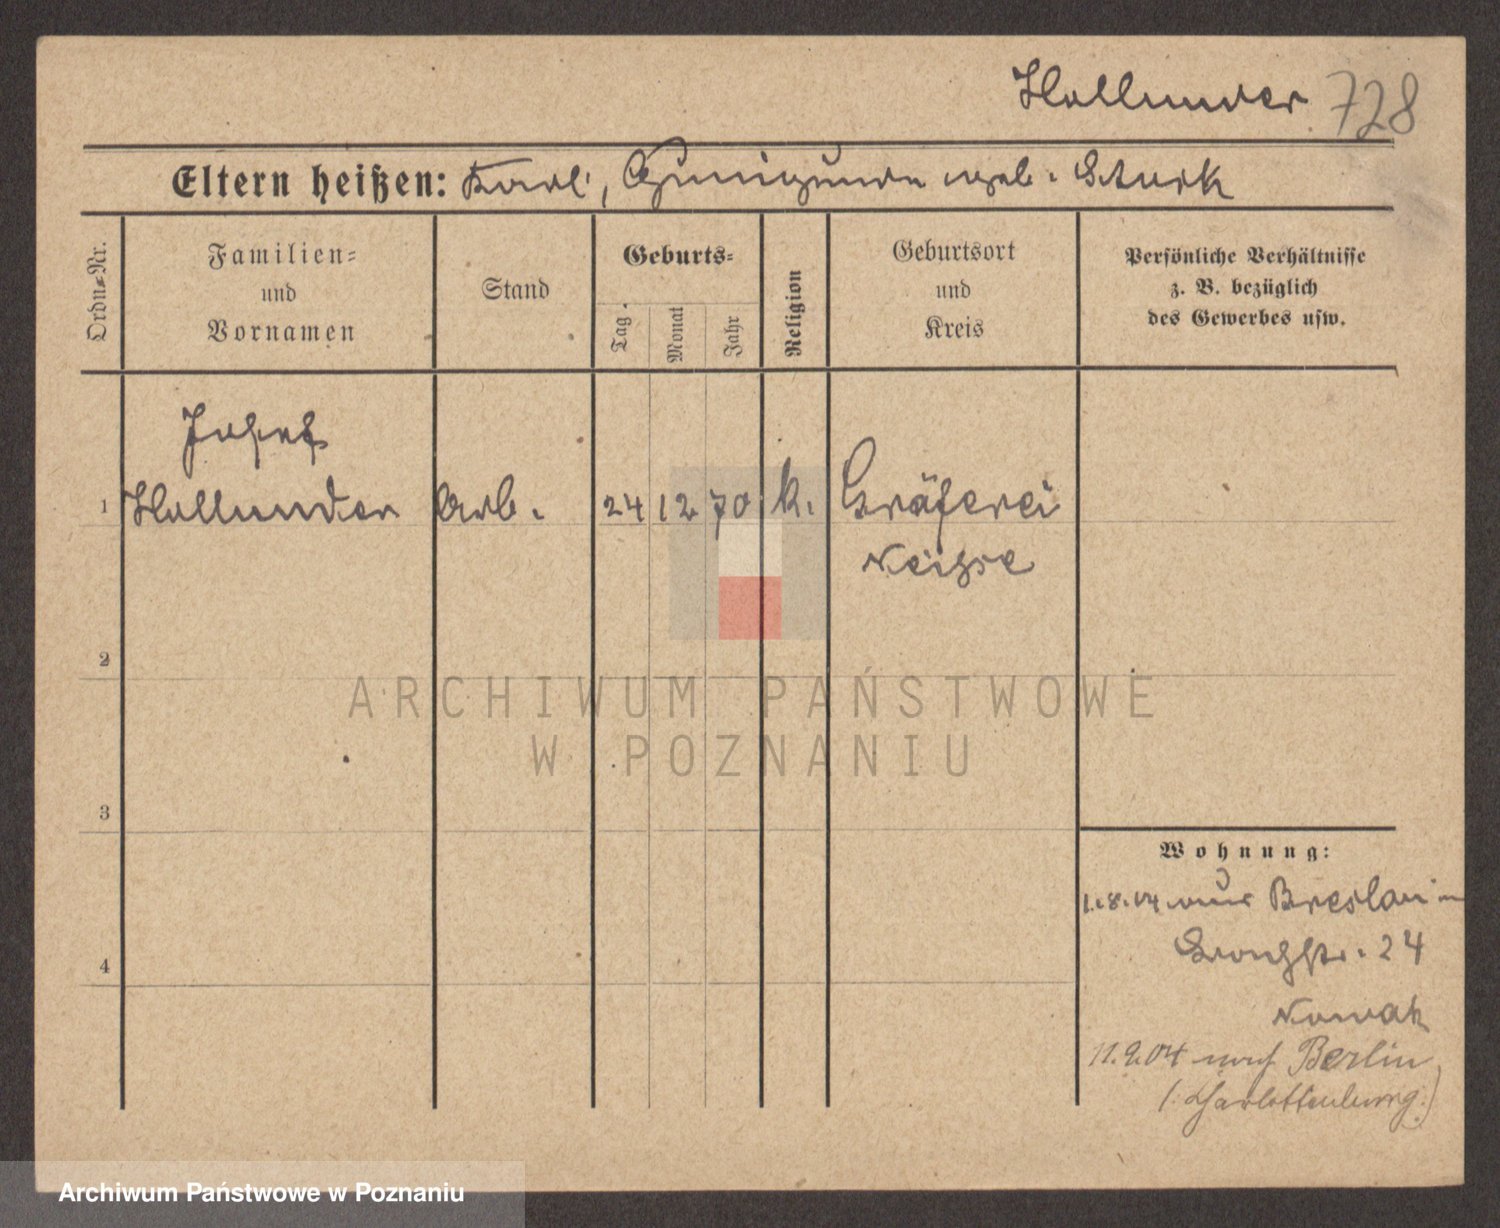 Hollunder 728
Eltern heißen: Karl, Kunigunda geb. Sturk
Ordn.-Nr.
Familien-
und
Vornamen
Stand
Geburts-
Tag
Monat
Jahr
Religion
Geburtsort
und
Kreis
Persönliche Verhältnisse
z. B. bezüglich
des Gewerbes usw.
Josef
1 Hollunder Arb. 24 12 70 k. Gräferei
Neisse
2
3
4
Wohnung:
1.8.04 aus Breslau in
24
Nowak
11.9.04 nach Berlin
(Charlottenburg)
ARCHIWUM PAŃSTWOWE
W POZNANIU
Archiwum Państwowe w Poznaniu